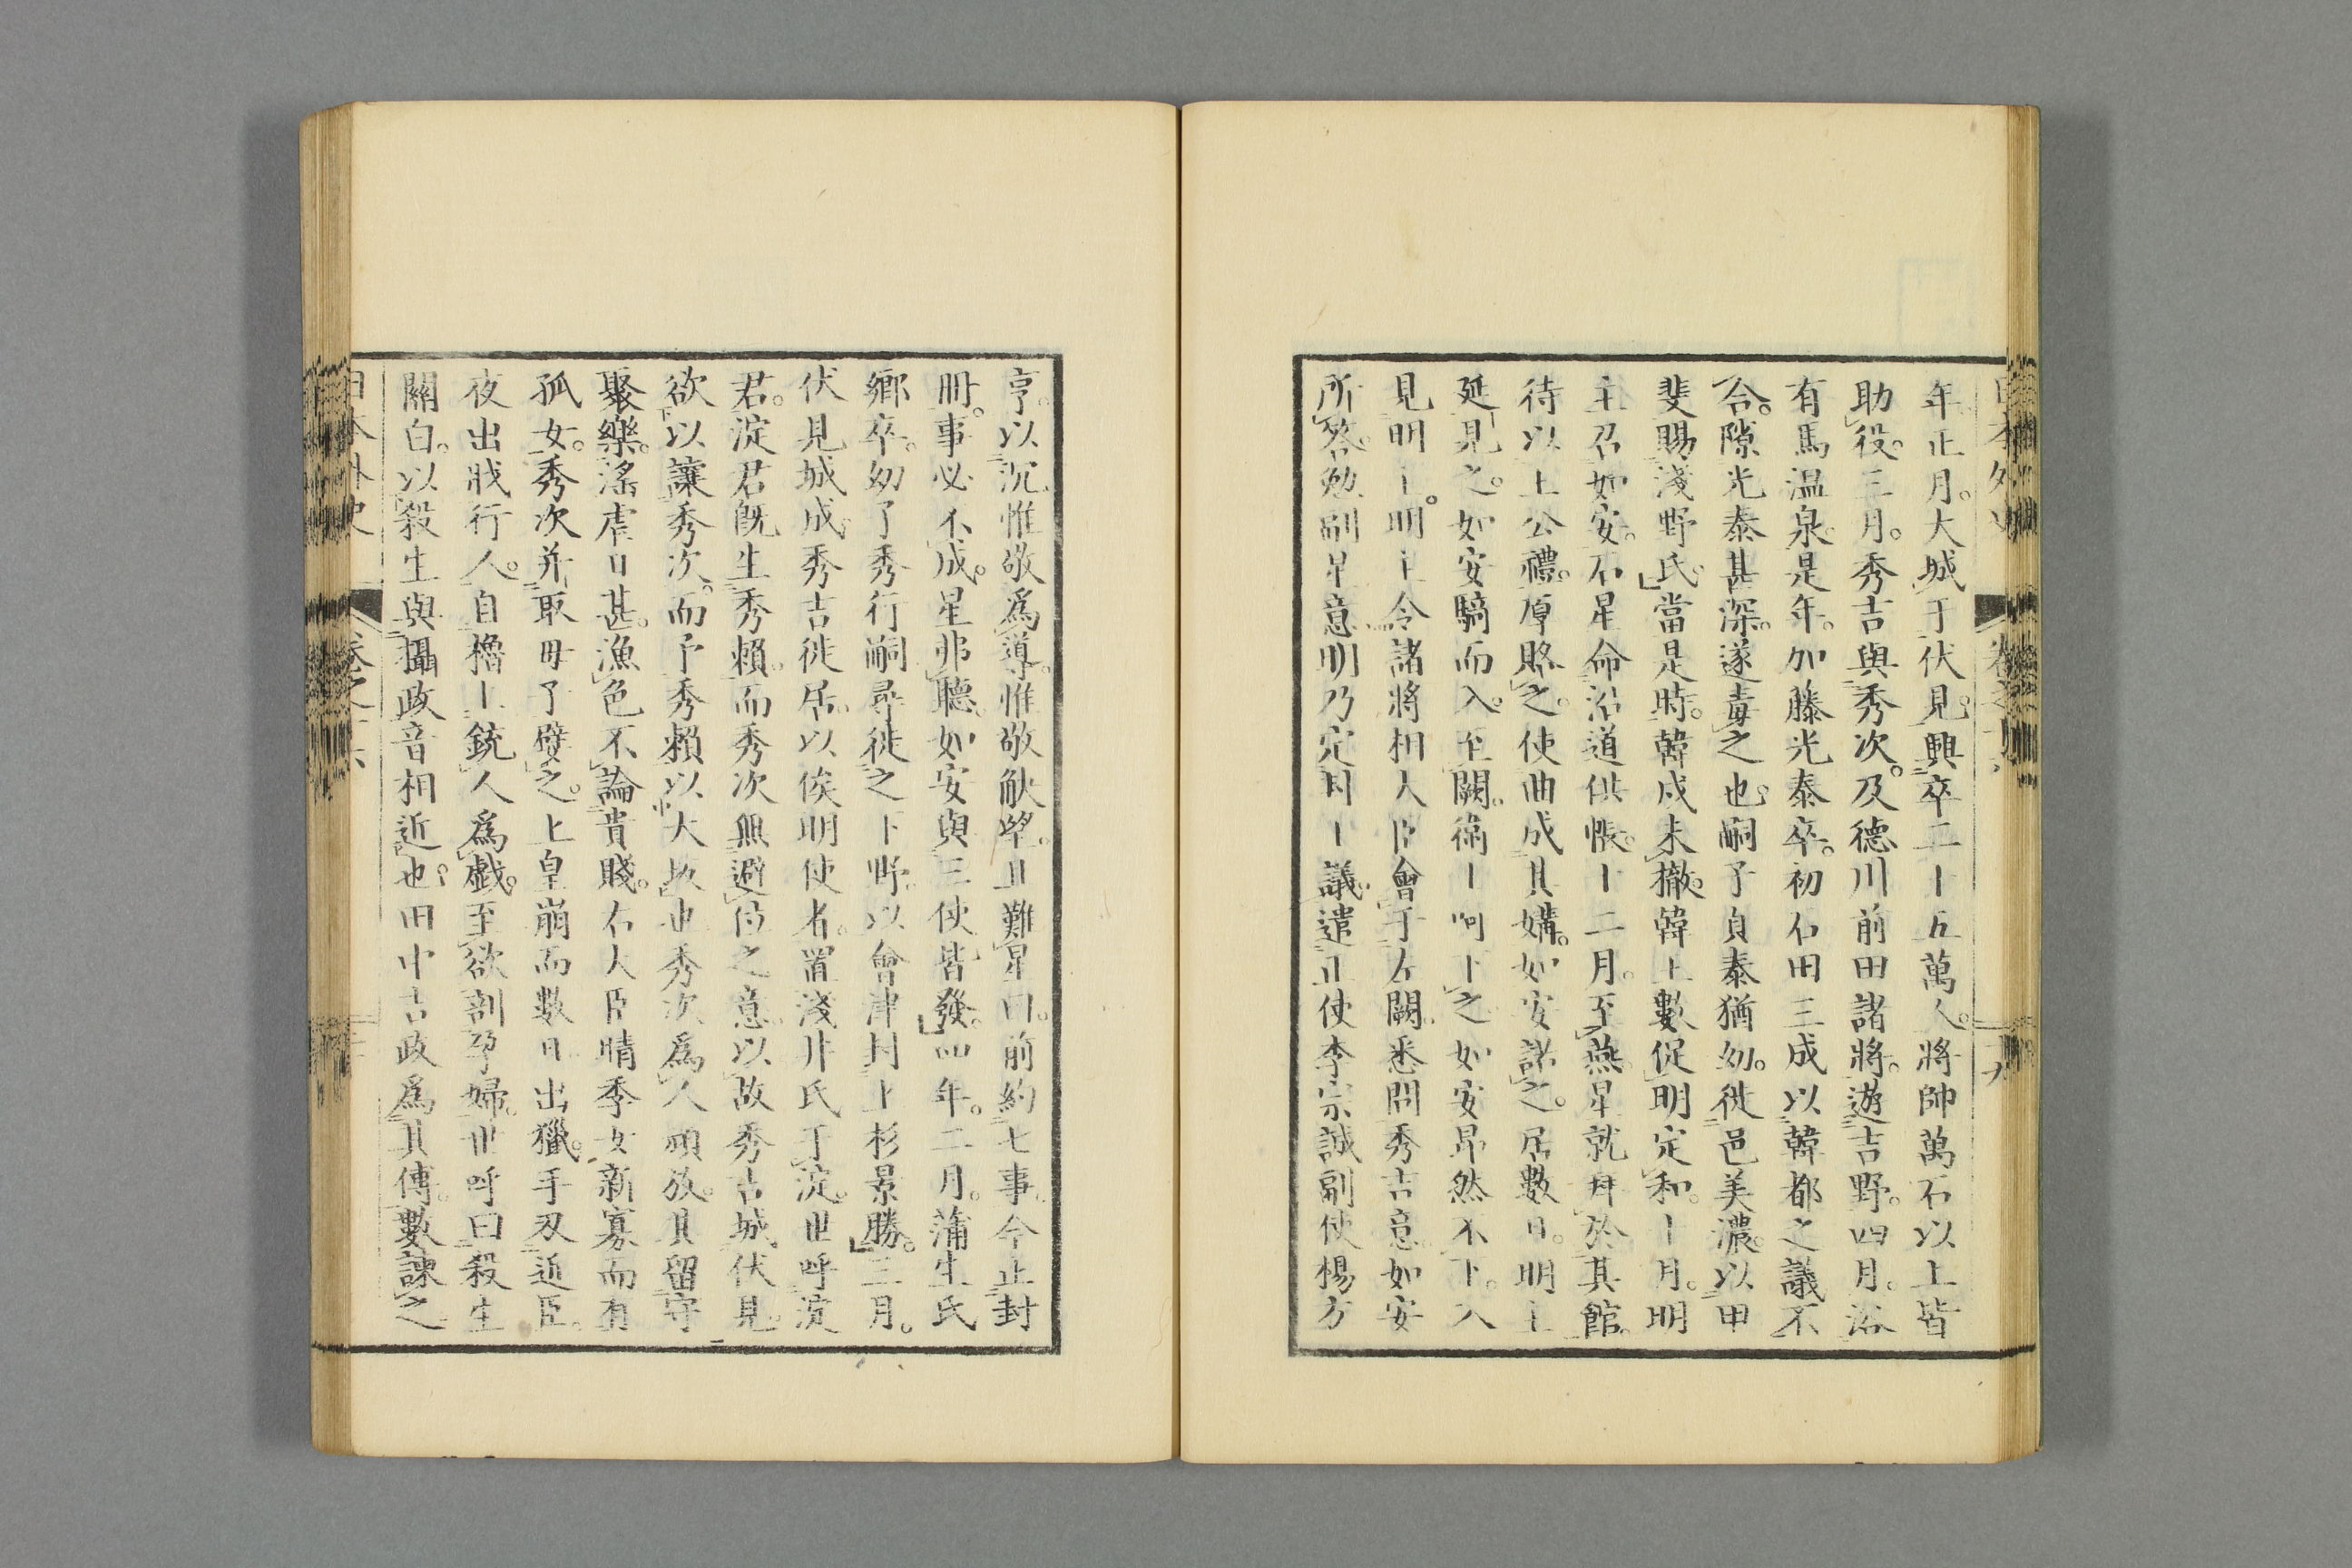 年正月。大城于伏見。興卒二十五萬人。將帥萬石以上皆
助役。三月。秀吉與秀次。及德川前田諸將。遊吉野。四月。浴
有馬温泉。是年。加藤光泰卒。初石田三成以韓都之議不
合。隙光泰甚深。遂毒之也。嗣子貞泰猶幼。徙邑美濃。以甲
斐賜淺野氏。當是時。韓戍未撤。韓上數促明定和。十月。明
主召如安。石星命沿道供帳。十二月。至燕。星就拜於其館。
待以上公禮。厚賂之。使曲成其媾。如安諾之。居數日。明主
延見之。如安騎而入。至闕。衛士呵下之。如安昂然不下。入
見明主。明主令諸將相大臣會于左闕。悉問秀吉意。如安
所答。勉副星意。明乃定封議。遣正使李宗誠副使楊方
亨。以沉惟敬爲導。惟敬觖望。且難星曰。前約七事。今止封
冊。事必不成。星弗聽。如安與三使皆發。四年。二月。蒲生氏
鄉卒。幼子秀行嗣。尋徙之下野。以會津封上杉景勝。三月。
伏見城成。秀吉徙居。以俟明使者。置淺井氏于淀。世呼淀
君。淀君既生秀賴。而秀次無避位之意。以故秀吉城伏見。
欲以讓秀次。而予秀賴以大坂也。秀次爲人頑放。其留守
聚樂。淫虐日甚。漁色不論貴賤。右大臣晴季女新寡而有
孤女。秀次并取母子嬖之。上皇崩而數日。出獵。手刃近臣。
夜出戕行人。自櫓上銃人爲戲。至欲剖孕婦。世呼曰殺生
關白。以殺生與攝政音相近也。田中吉政爲其傅。數諫之
日本外史 卷之十六